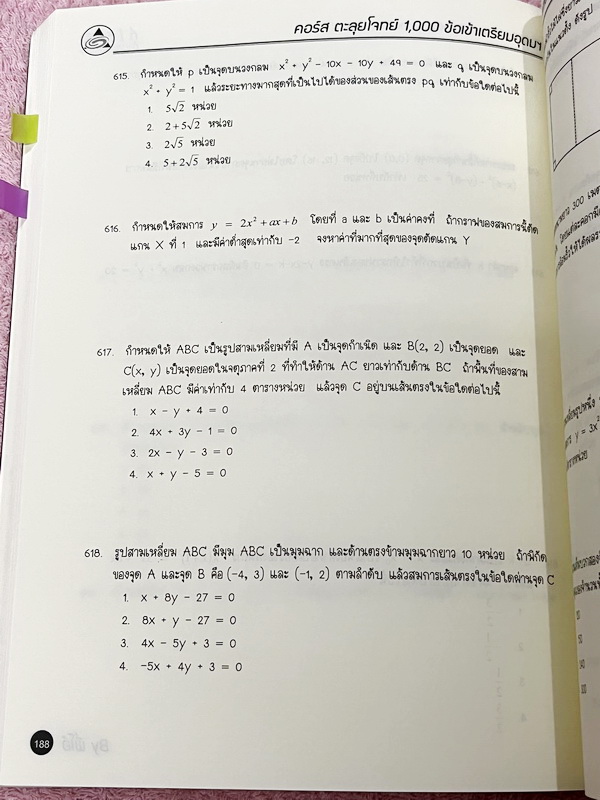 คอร์ส ตะลุยโจทย์ 1,000 ข้อเข้าเตรียมอุดมฯ
615. กำหนดให้ p เป็นจุดบนวงกลม x² + y² - 10x - 10y + 49 = 0 และ q เป็นจุดบนวงกลม
x² + y² = 1 แล้วระยะทางมากสุดที่เป็นไปได้ของส่วนของเส้นตรง pq เท่ากับข้อใดต่อไปนี้
1. 5√2 หน่วย
2. 2 + 5√2 หน่วย
3. 2√5 หน่วย
4. 5 + 2√5 หน่วย
616. กำหนดให้สมการ y = 2x² + ax + b โดยที่ a และ b เป็นค่าคงที่ ถ้ากราฟของสมการนี้ตัด
แกน X ที่ 1 และมีค่าต่ำสุดเท่ากับ -2 จงหาค่าที่มากที่สุดของจุดตัดแกน Y
617. กำหนดให้ ABC เป็นรูปสามเหลี่ยมที่มี A เป็นจุดกำเนิด และ B(2, 2) เป็นจุดยอด และ
C(x, y) เป็นจุดยอดในจตุภาคที่ 2 ที่ทำให้ด้าน AC ยาวเท่ากับด้าน BC ถ้าพื้นที่ของสาม
เหลี่ยม ABC มีค่าเท่ากับ 4 ตารางหน่วย แล้วจุด C อยู่บนเส้นตรงในข้อใดต่อไปนี้
1. x - y + 4 = 0
2. 4x + 3y - 1 = 0
3. 2x - y - 3 = 0
4. x + y - 5 = 0
618. รูปสามเหลี่ยม ABC มีมุม ABC เป็นมุมฉาก และด้านตรงข้ามมุมฉากยาว 10 หน่วย ถ้าพิกัด
ของจุด A และจุด B คือ (-4, 3) และ (-1, 2) ตามลำดับ แล้วสมการเส้นตรงในข้อใดผ่านจุด C
1. x + 8y - 27 = 0
2. 8x + y - 27 = 0
3. 4x - 5y + 3 = 0
4. -5x + 4y + 3 = 0
188